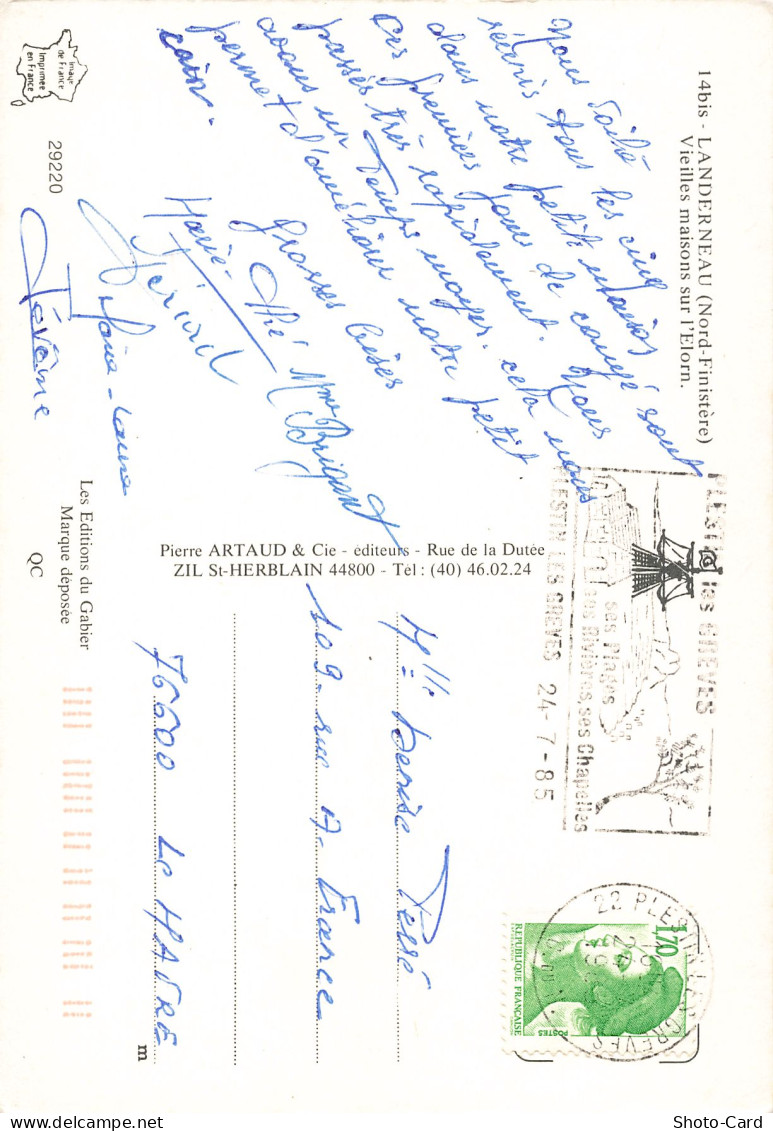 14bis - LANDERNEAU (Nord-Finistère)
Vieilles maisons sur l'Elorn.
Nous voilà les cinq
réunis tous
dans notre petit
Ces premiers jours de congé sont
passés très rapidement. Nous
avons un Temps moyen. cela nous
permet d'améliorer notre petit
coin.
Grosses bises
Marie-Thé Mme Brigant
Gérard
Marie-Laure
Jérôme
Image
de France
Imprimée
en France
29220
Les Editions du Gabier
Marque déposée
QC
Pierre ARTAUD & Cie - éditeurs - Rue de la Dutée
ZIL St-HERBLAIN 44800 - Tél : (40) 46.02.24
PLESTIN les GREVES
ses Plages
ses Rivières ses Chapelles
PLESTIN LES GREVES 24-7-85
22 PLESTIN LES GREVES
1,70
REPUBLIQUE FRANÇAISE
POSTES
Mlle Denise
109 - rue A. France
76600 Le HAVRE
m
Shoto-Card